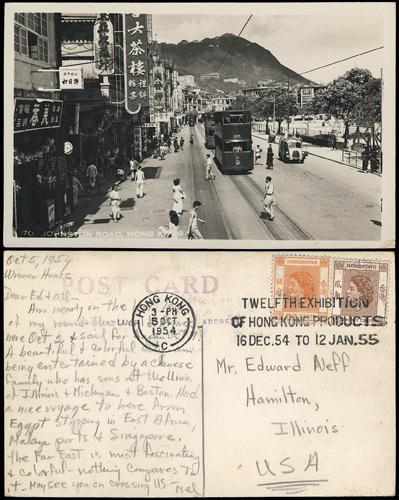 大茶樓
70. JOHNSTON ROAD, HONG KONG.
Oct 5, 1954
POST CARD
Dear Ed & all—
Am nearly on the
of my round the
here Oct 2 & sail for
A beautiful & colorful
being entertained by a chinese
family who has sons at the Univ.
of Illinois & Michigan & Boston. Had
a nice voyage to here from
Egypt stopping in East Africa,
Malaya ports & Singapore.
The Far East is most fascinating
& colorful - nothing compares to
it - May see you on crossing US. - Mel
ADDRESS
HONG KONG
3 - PM
5 OCT
1954
C
HONGKONG
HONGKONG
TWELFTH EXHIBITION
OF HONG KONG PRODUCTS
16 DEC. 54 TO 12 JAN. 55
Mr. Edward Neff
Hamilton,
Illinois
USA